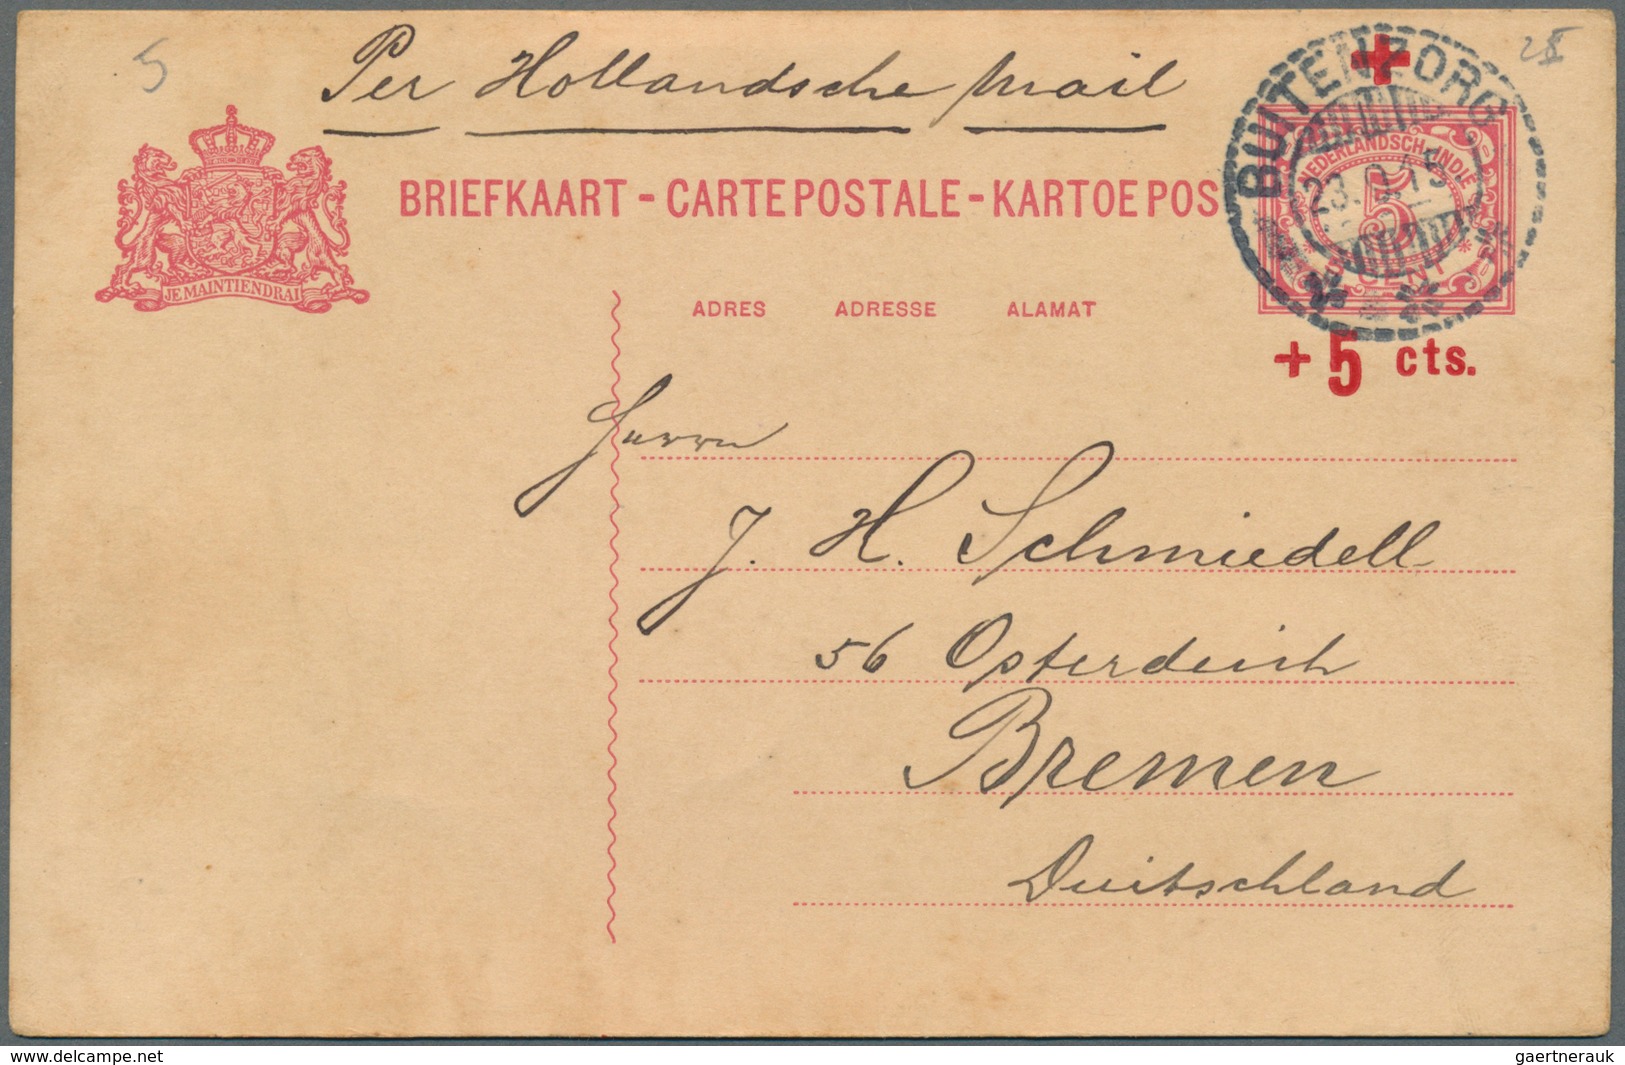 5
Per Hollandsche Mail
25
BUITENZORG
23. 15
NEDERLANDSCH-INDIE
5
CENT
JE MAINTIENDRAI
BRIEFKAART - CARTE POSTALE - KARTOE POS
ADRES ADRESSE ALAMAT
+ 5 cts.
Herrn
J. H. Schmiedell
56 Osterdeich
Bremen
Duitschland
www.delcampe.net
gaertnerauk